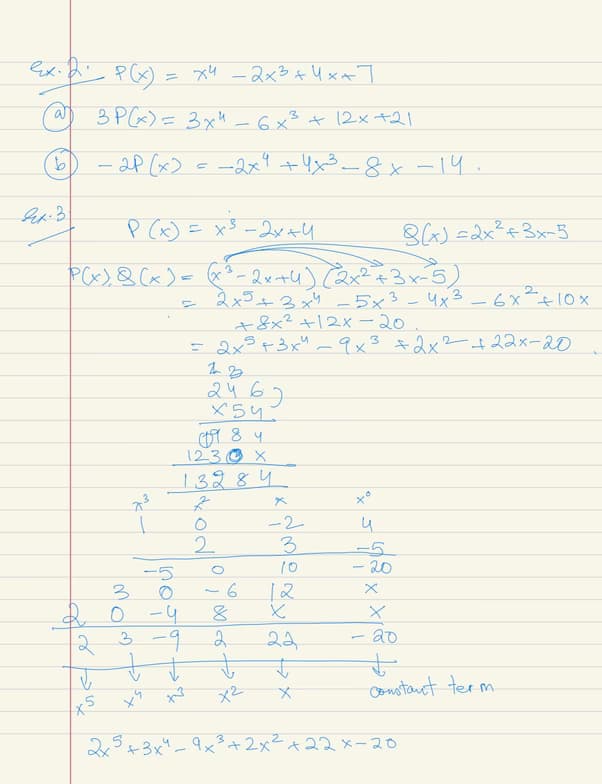 Ex. 2. P(x) = x⁴ - 2x³ + 4x + 7
(a) 3P(x) = 3x⁴ - 6x³ + 12x + 21
(b) -2P(x) = -2x⁴ + 4x³ - 8x - 14.
Ex. 3 P(x) = x³ - 2x + 4 Q(x) = 2x² + 3x - 5
P(x).Q(x) = (x³ - 2x + 4)(2x² + 3x - 5)
= 2x⁵ + 3x⁴ - 5x³ - 4x³ - 6x² + 10x
+ 8x² + 12x - 20.
= 2x⁵ + 3x⁴ - 9x³ + 2x² + 22x - 20.
246
x54
984
1230x
13284
x³ x² x x⁰
1 0 -2 4
2 3 -5
-5 0 10 -20
3 0 -6 12 x
2 0 -4 8 x x
2 3 -9 2 22 -20
↓ ↓ ↓ ↓ ↓ ↓
x⁵ x⁴ x³ x² x constant term
2x⁵ + 3x⁴ - 9x³ + 2x² + 22x - 20